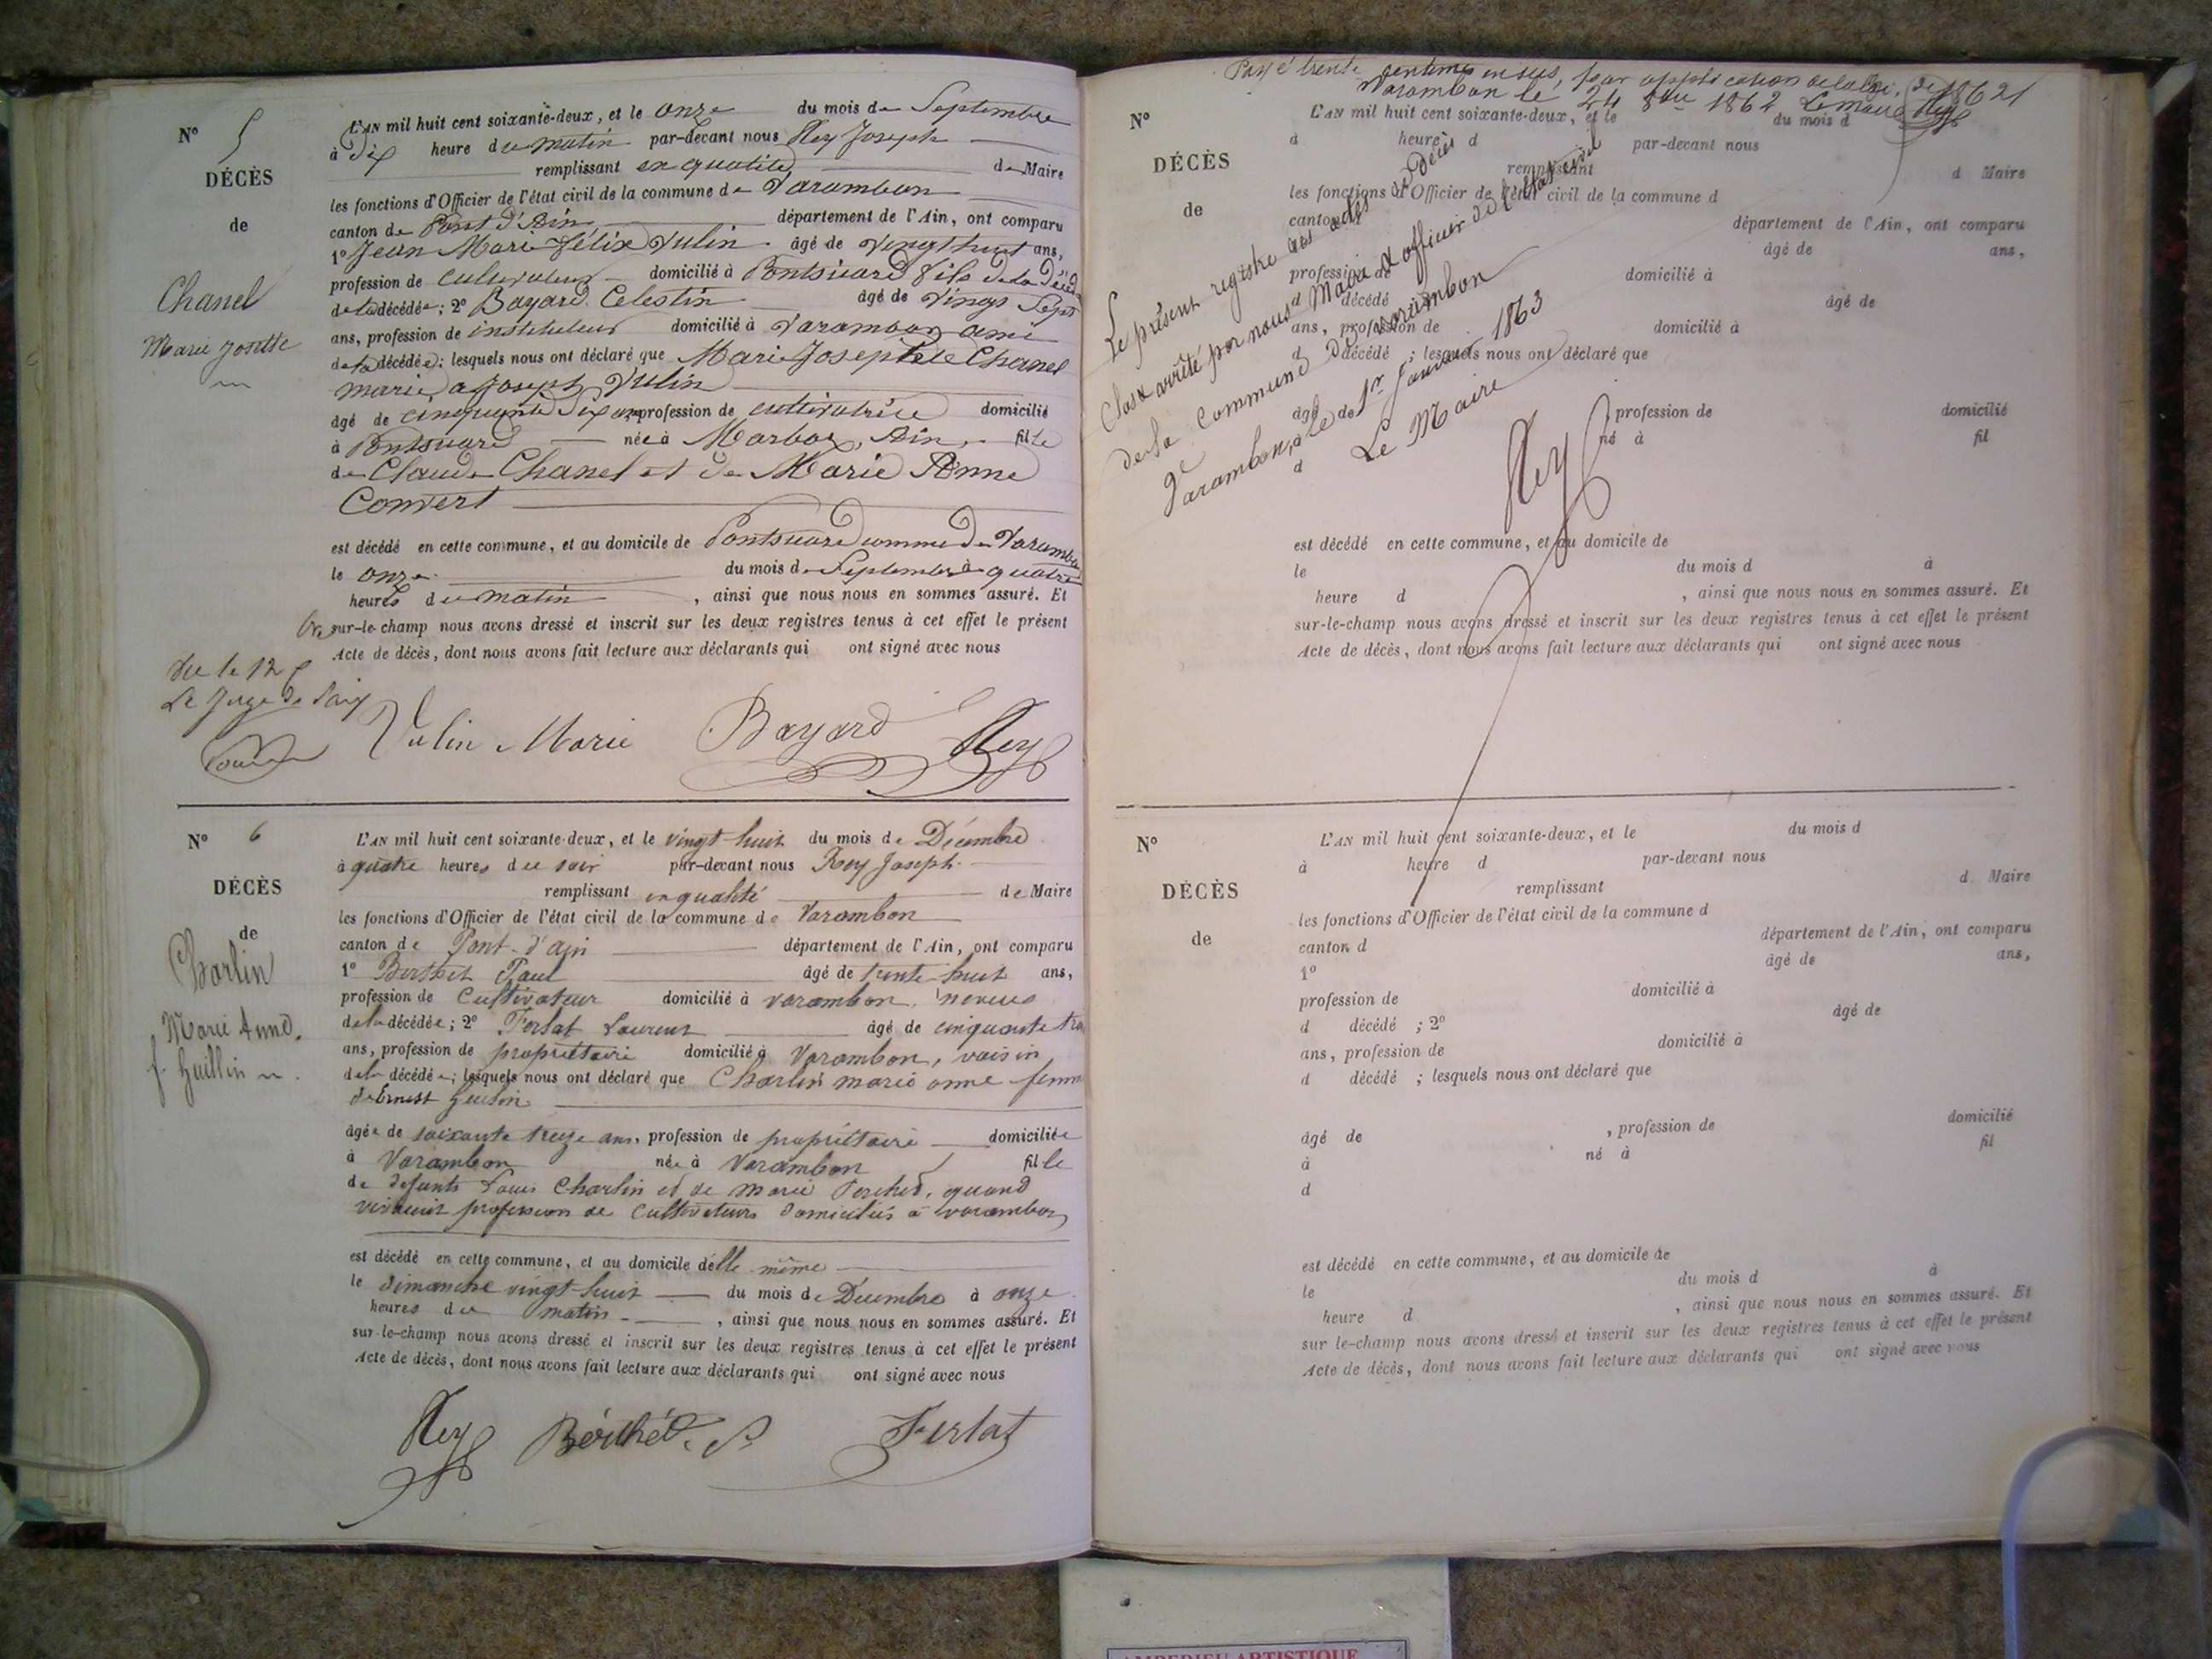 N° 5
DÉCÈS
de
Chanel
Marie Josette
L'AN mil huit cent soixante-deux, et le onze du mois de Septembre
à dix heure du matin par-devant nous Rey Joseph
remplissant en qualité de Maire
les fonctions d'Officier de l'état civil de la commune de Varambon
canton de Pont d'Ain département de l'Ain, ont comparu
1° Jean Marie Félix Vulin âgé de vingt huit ans,
profession de cultivateur domicilié à Pontsuard fils de la
de la décédée; 2° Bayard Celestin âgé de vingt sept
ans, profession de instituteur domicilié à Varambon ami
de la décédée; lesquels nous ont déclaré que Marie Josephte Chanel
marie a Joseph Vulin
âgé de cinquante six ans profession de cultivatrice domicilié
à Pontsuard née à Marboz, Ain, fille
de Claude Chanel et de Marie Anne
Convert
est décédé en cette commune, et au domicile de Pontsuard commune de Varambon
le onze du mois de Septembre à quatre
heures du matin, ainsi que nous nous en sommes assuré. Et
sur-le-champ nous avons dressé et inscrit sur les deux registres tenus à cet effet le présent
Acte de décès, dont nous avons fait lecture aux déclarants qui ont signé avec nous
Vu le 12
Le Juge de Paix
Vulin Marie Bayard Rey
N° 6
DÉCÈS
de
Charlin
Marie Anne.
f. Guillin
L'AN mil huit cent soixante-deux, et le vingt-huit du mois de Décembre
à quatre heures du soir par-devant nous Rey Joseph
remplissant en qualité de Maire
les fonctions d'Officier de l'état civil de la commune de Varambon
canton de Pont-d'ain département de l'Ain, ont comparu
1° Berthet Paul âgé de trente huit ans,
profession de Cultivateur domicilié à varambon, neveu
de la décédée; 2° Ferlat Laurent âgé de cinquante trois
ans, profession de propriétaire domicilié à Varambon, voisin
de la décédée; lesquels nous ont déclaré que Charlin marie anne femme
d'Ernest
âgée de soixante treize ans, profession de propriétaire domiciliée
à Varambon née à Varambon fille
de defunts Louis Charlin et de marie quand
vivaient profession de Cultivateurs domiciliés à varambon
est décédé en cette commune, et au domicile d'elle même
le dimanche vingt-huit du mois de Décembre à onze
heures du matin, ainsi que nous nous en sommes assuré. Et
sur-le-champ nous avons dressé et inscrit sur les deux registres tenus à cet effet le présent
Acte de décès, dont nous avons fait lecture aux déclarants qui ont signé avec nous
Rey Berthet. P Ferlat
Payé trente centimes en sus, par application de la loi de 1862
Varambon le 24 8bre 1862 Le maire Rey
N°
DÉCÈS
de
L'AN mil huit cent soixante-deux, et le du mois d
à heure d par-devant nous
remplissant d Maire
les fonctions d'Officier de l'état civil de la commune d
canton d département de l'Ain, ont comparu
âgé de ans,
profession de domicilié à
d décédé âgé de
ans, profession de domicilié à
d décédé ; lesquels nous ont déclaré que
âgé de profession de domicilié
à né à fil
d
Le présent registre des actes de Décès
Clos & arrêté par nous Maire & officier de l'état civil
de la Commune de Varambon
Varambon, le 1er Janvier 1863
Le Maire
Rey
est décédé en cette commune, et au domicile de
le du mois d à
heure d , ainsi que nous nous en sommes assuré. Et
sur-le-champ nous avons dressé et inscrit sur les deux registres tenus à cet effet le présent
Acte de décès, dont nous avons fait lecture aux déclarants qui ont signé avec nous
N°
DÉCÈS
de
L'AN mil huit cent soixante-deux, et le du mois d
à heure d par-devant nous
remplissant d Maire
les fonctions d'Officier de l'état civil de la commune d
canton d département de l'Ain, ont comparu
1° âgé de ans,
profession de domicilié à
d décédé ; 2° âgé de
ans, profession de domicilié à
d décédé ; lesquels nous ont déclaré que
âgé de , profession de domicilié
à né à fil
d
est décédé en cette commune, et au domicile de
le du mois d à
heure d , ainsi que nous nous en sommes assuré. Et
sur le-champ nous avons dressé et inscrit sur les deux registres tenus à cet effet le présent
Acte de décès, dont nous avons fait lecture aux déclarants qui ont signé avec nous